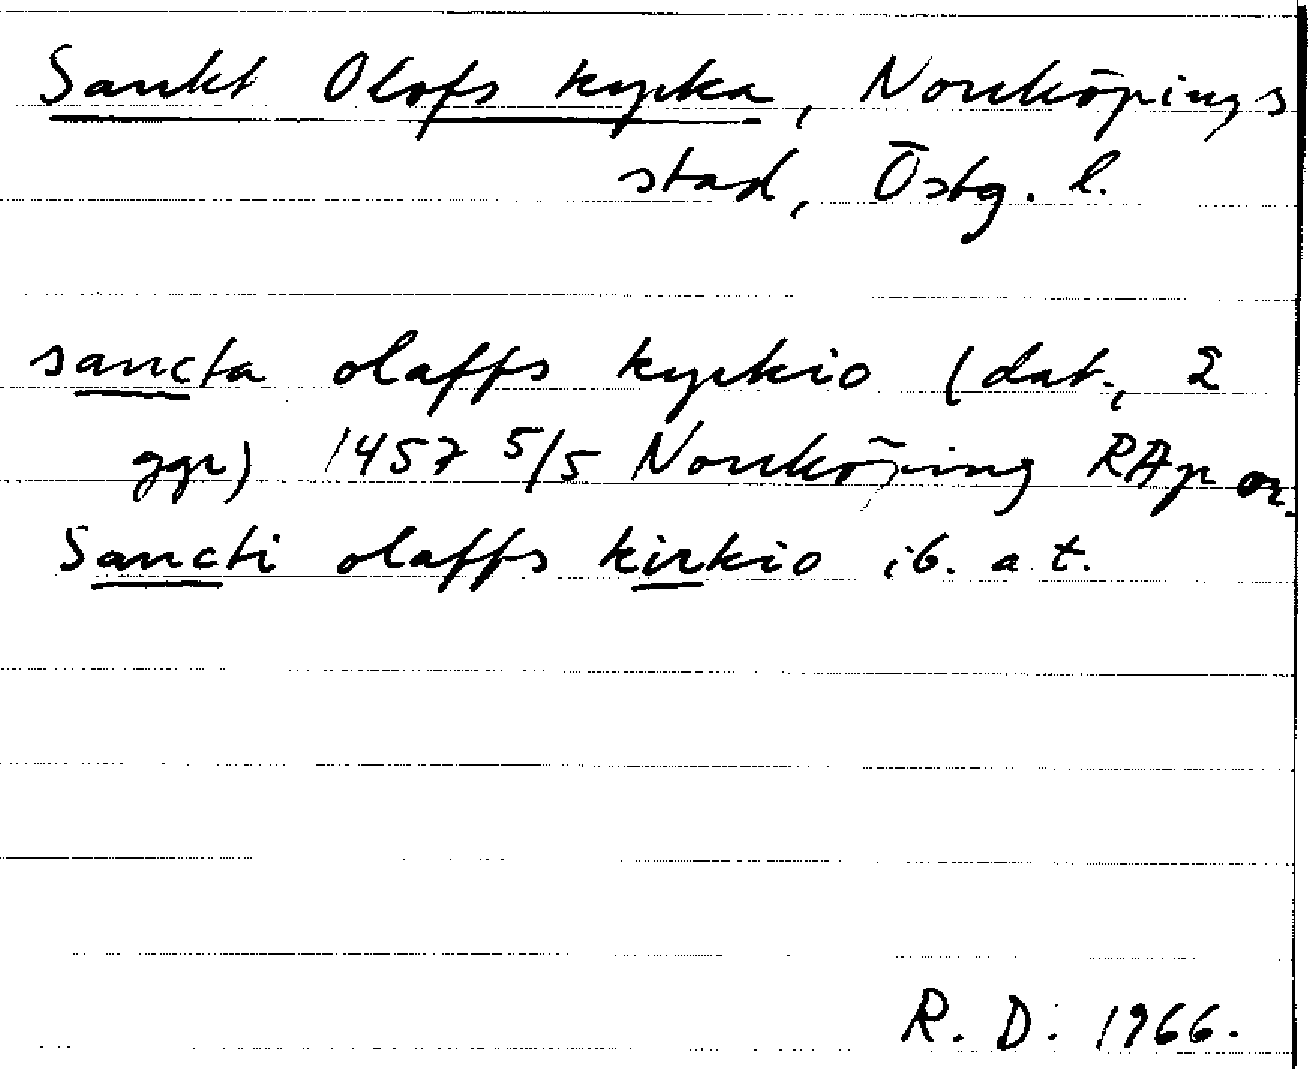 Sankt Olofs kyrka, Norrköpings
stad, Östg. l.
sancta olaffs kyrkio (dat., 2
ggr) 1457 5/5 Norrköping RAp or.
Sancti olaffs kirkio ib. a t.
R. D. 1966.